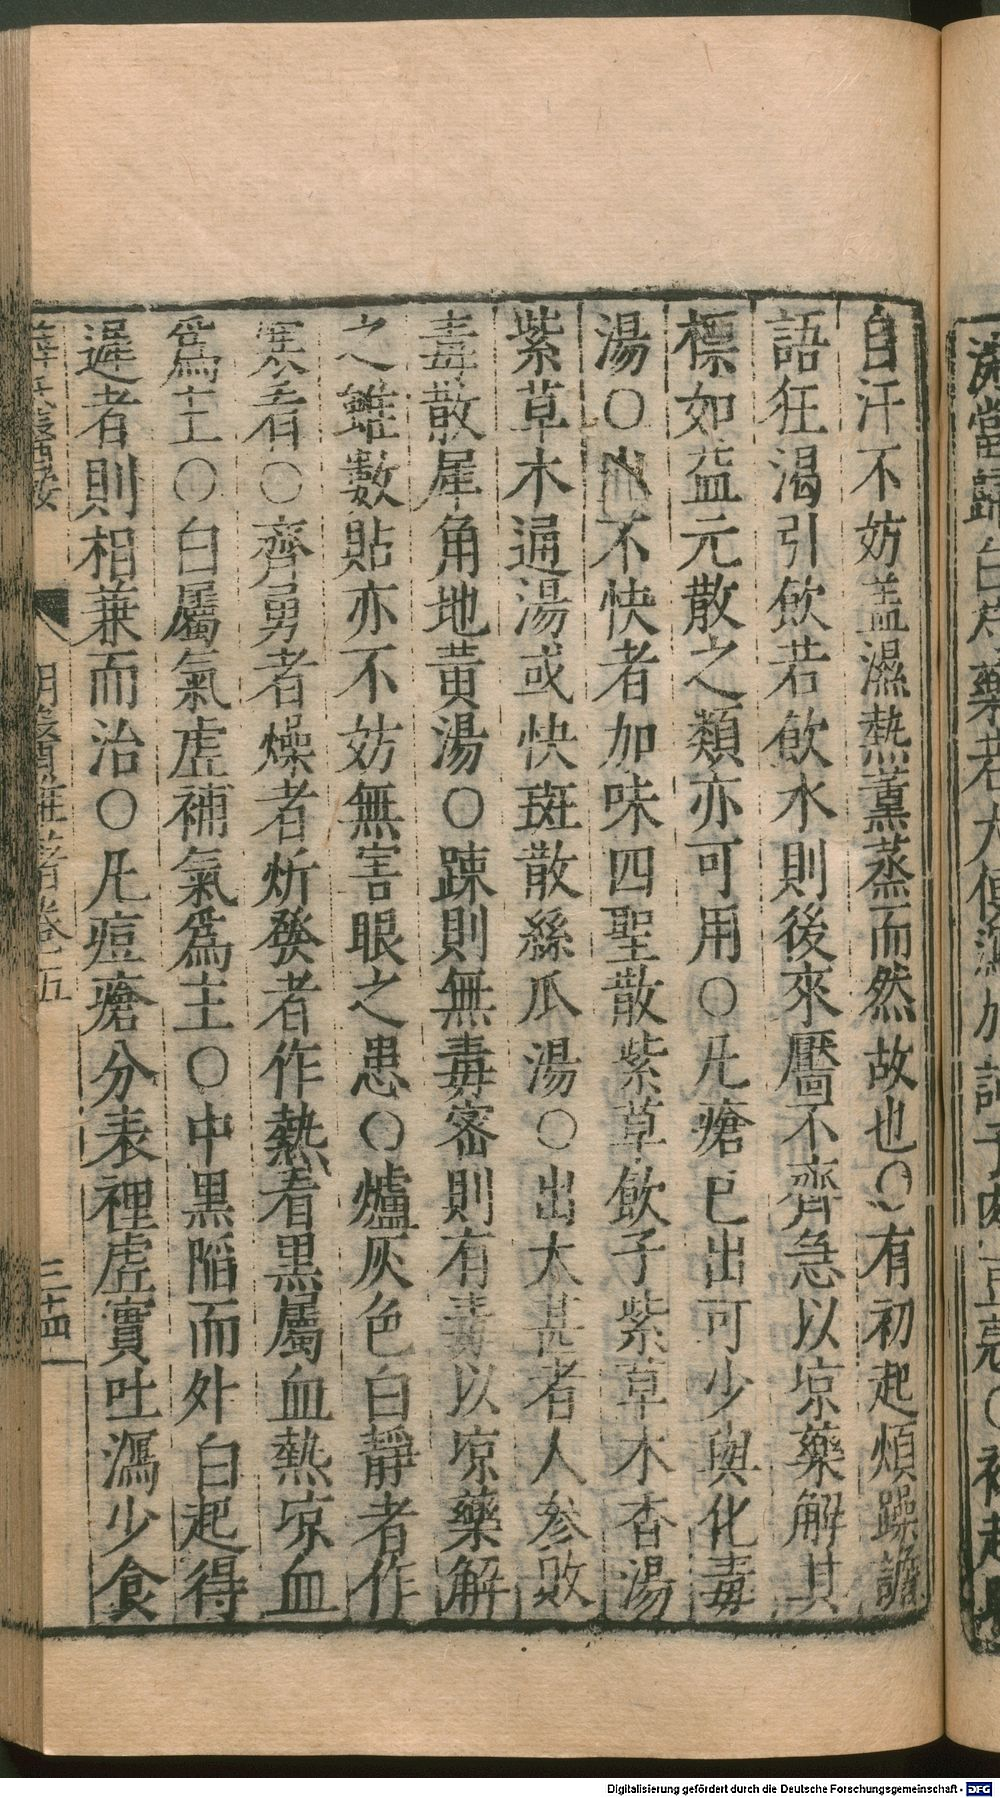 自汗不妨盖濕熱薰蒸而然故也○有初起煩躁譫
語狂渴引飲若飲水則後來靨不齊急以凉藥解其
標如益元散之類亦可用○凡瘡已出可少與化毒
湯○出不快者加味四聖散紫草飲子紫草木香湯
紫草木通湯或快斑散絲瓜湯○出太甚者人參敗
毒散犀角地黄湯○踈則無毒密則有毒以凉藥解
之雖數貼亦不妨無害眼之患○爐灰色白靜者作
寒看○齊勇者燥者焮發者作熱看黒屬血熱凉血
爲主○白屬氣虚補氣爲主○中黒陷而外白起得
遲者則相兼而治○凡痘瘡分表裡虚實吐瀉少食
薛氏醫按 明醫雜著卷五 三十四